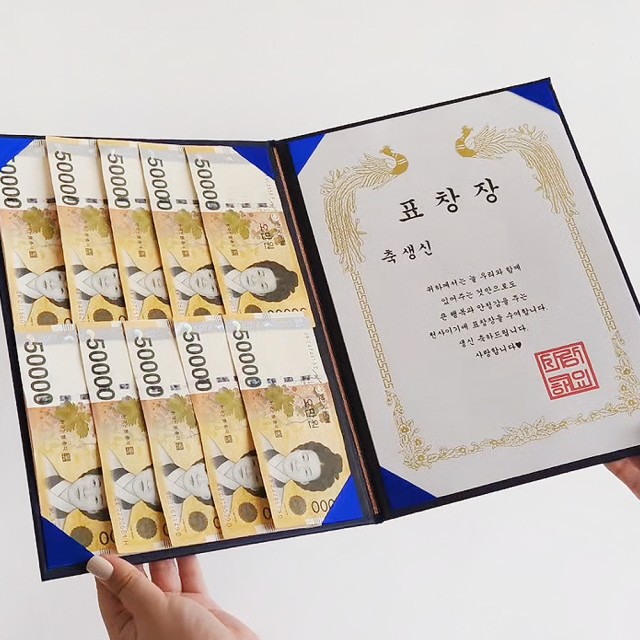 50000
50000
50000
50000
50000
오만원
50000
50000
50000
50000
50000
오만원
000
표창장
축생신
귀하께서는 늘 우리와 함께
있어주는 것만으로도
큰 행복과 안정감을 주는
천사이기에 표창장을 수여합니다.
생신 축하드립니다.
사랑합니다♥